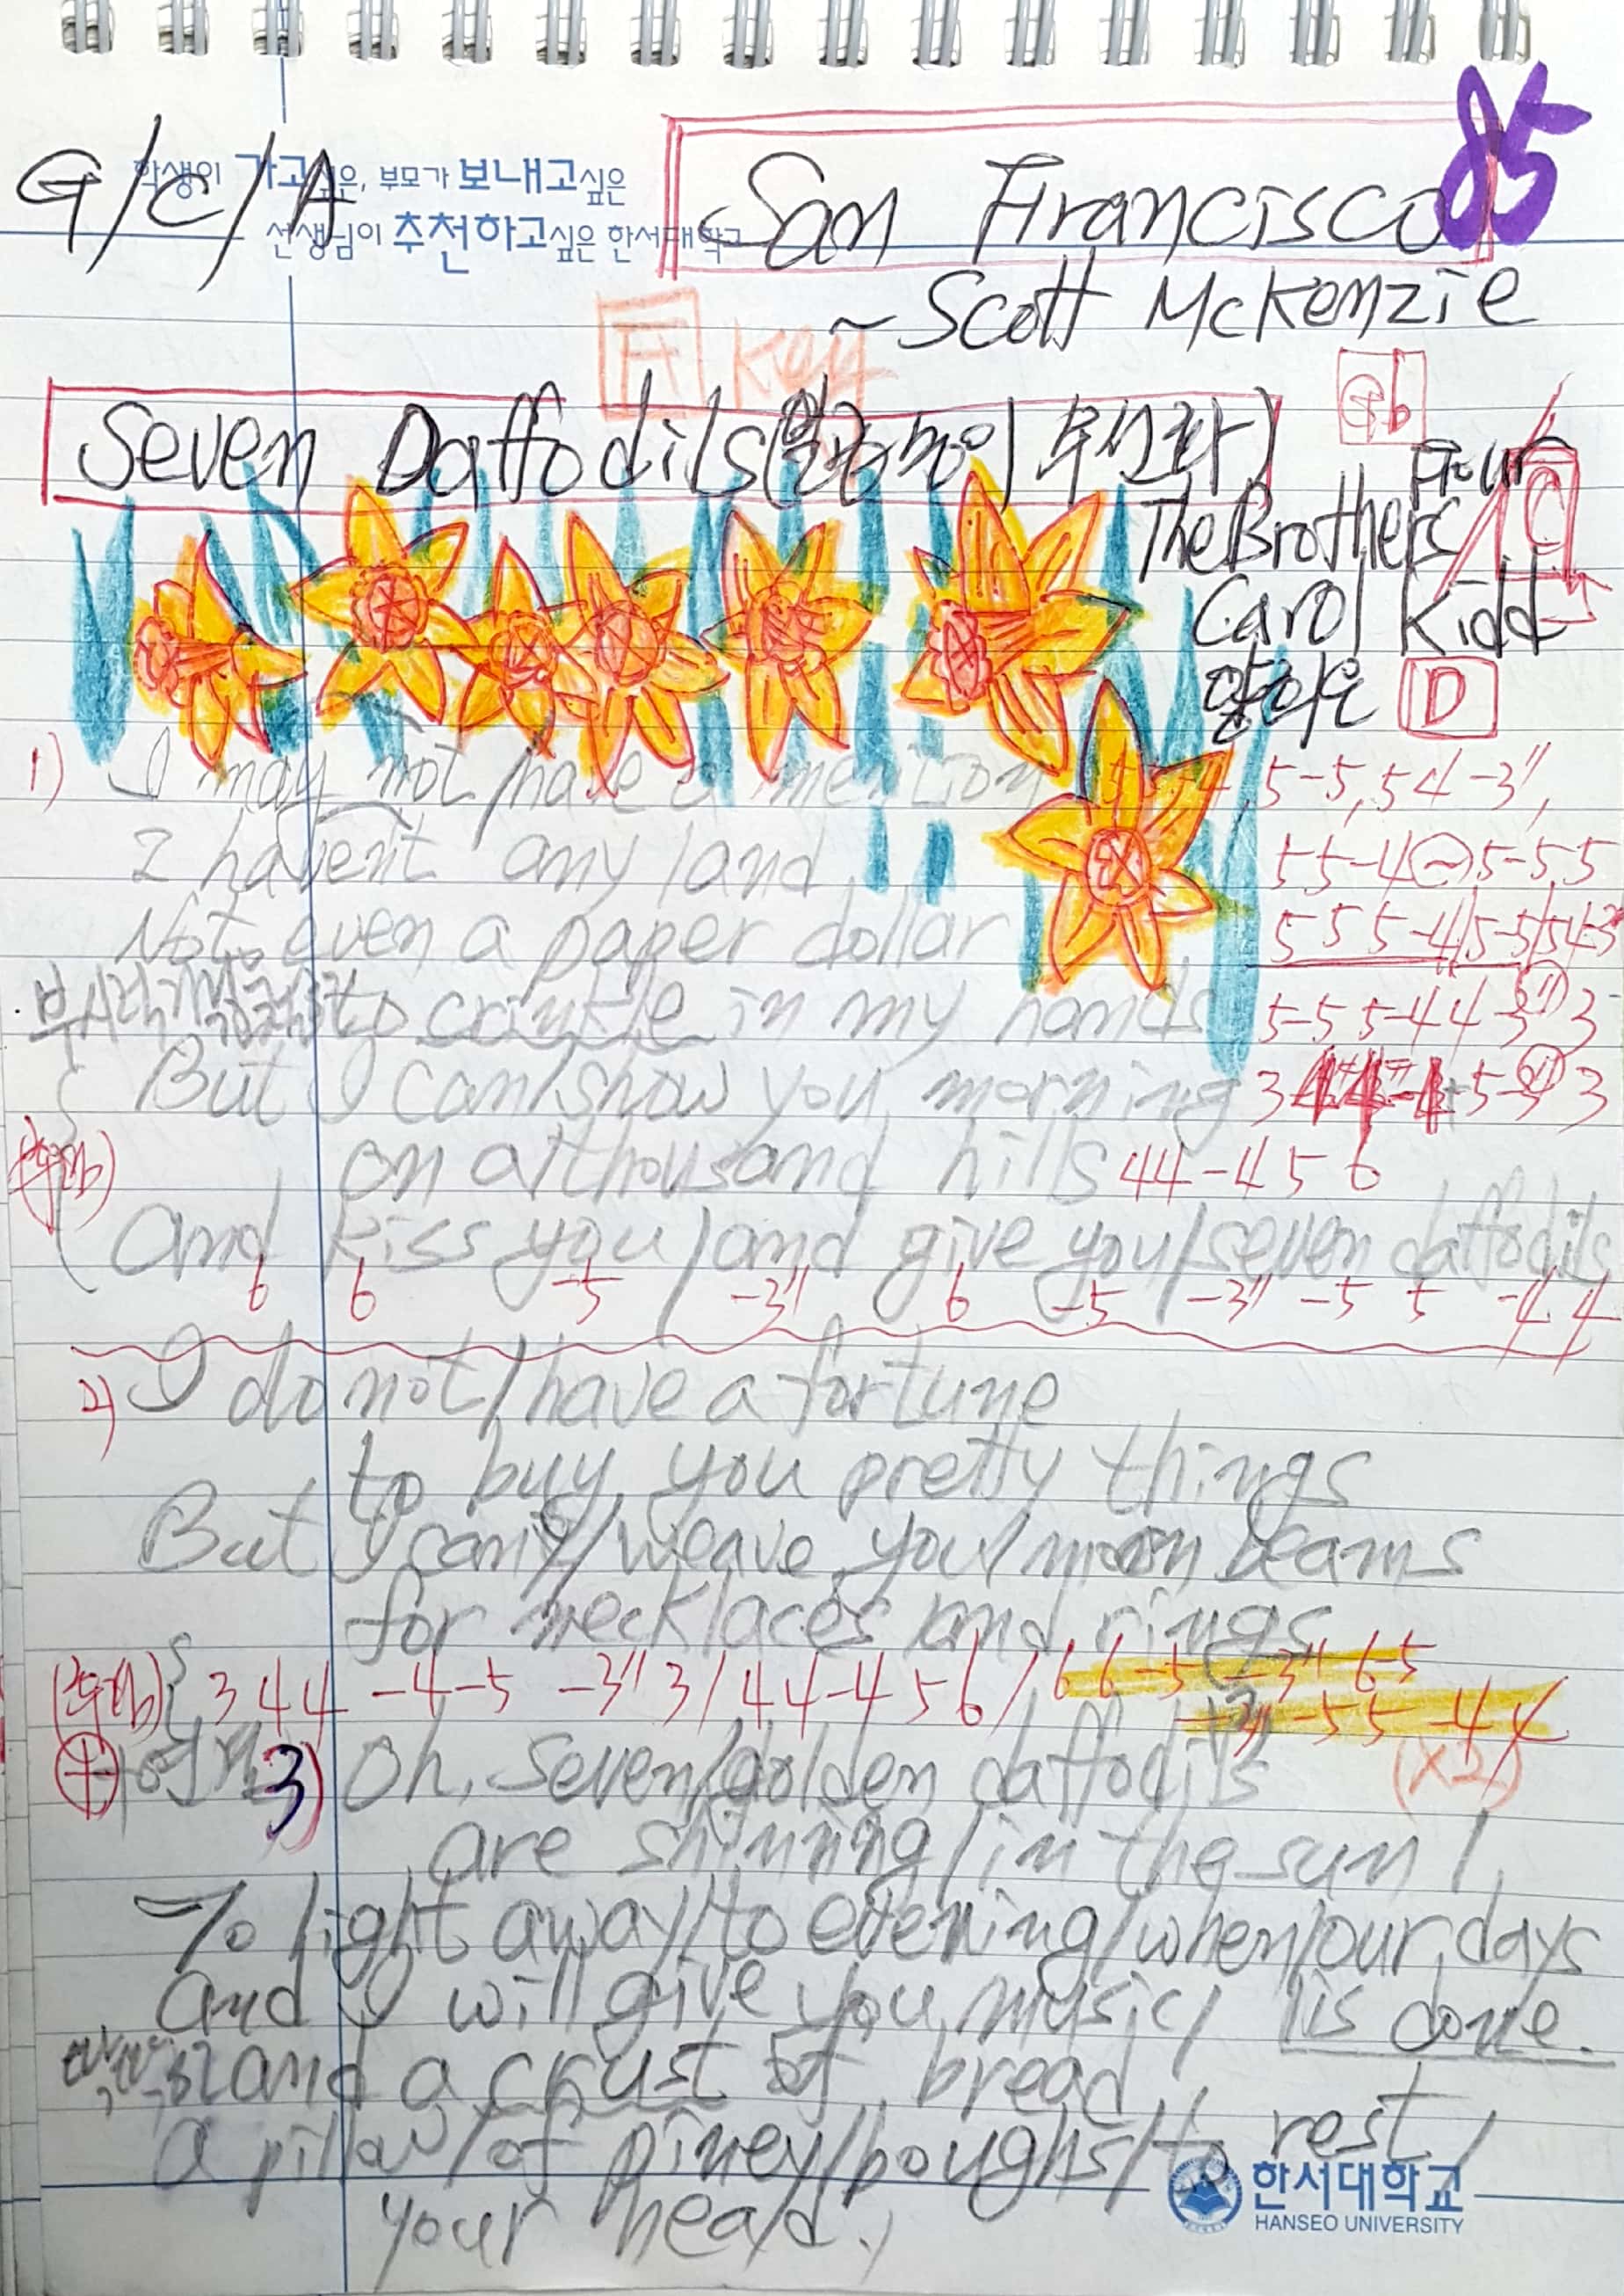 85
G/C/A
학생이 가고싶은, 부모가 보내고싶은
선생님이 추천하고싶은 한서대학교
San Francisco
~Scott McKenzie
F Key
Gb
Seven Daffodils (일곱송이 수선화)
The Brothers Four
Carol Kidd
양희은 D
1) I may not have a mention
5-5,54-3",
I haven't any land
55-4 5-5,5
Not even a paper dollar
5 5 5-4/5-5/54-3"
to crinkle in my hands
5-5 5-44-3" 3
But I can/show you morning
on a/thousand hills 44-456
(후렴)
And kiss you/and give you/seven daffodils
6 6 -5 -3" 6 -5 -3" -5 5 -4 4
2) I do not/have a fortune
to buy you pretty things
But I can/weave you/moon beams
for necklaces and rings
(후렴) 3 4 4 -4-5 -3" 3/44-456/66-5-3" 6-5
-3"-55-44
(x2)
3) Oh, seven/golden daffodils
are shinning/in the sun/
To light away/to evening/when/our days
is done.
And I will give you music/
and a crust of bread
a pillow/of piney/boughs/to rest/
your head.
한서대학교
HANSEO UNIVERSITY